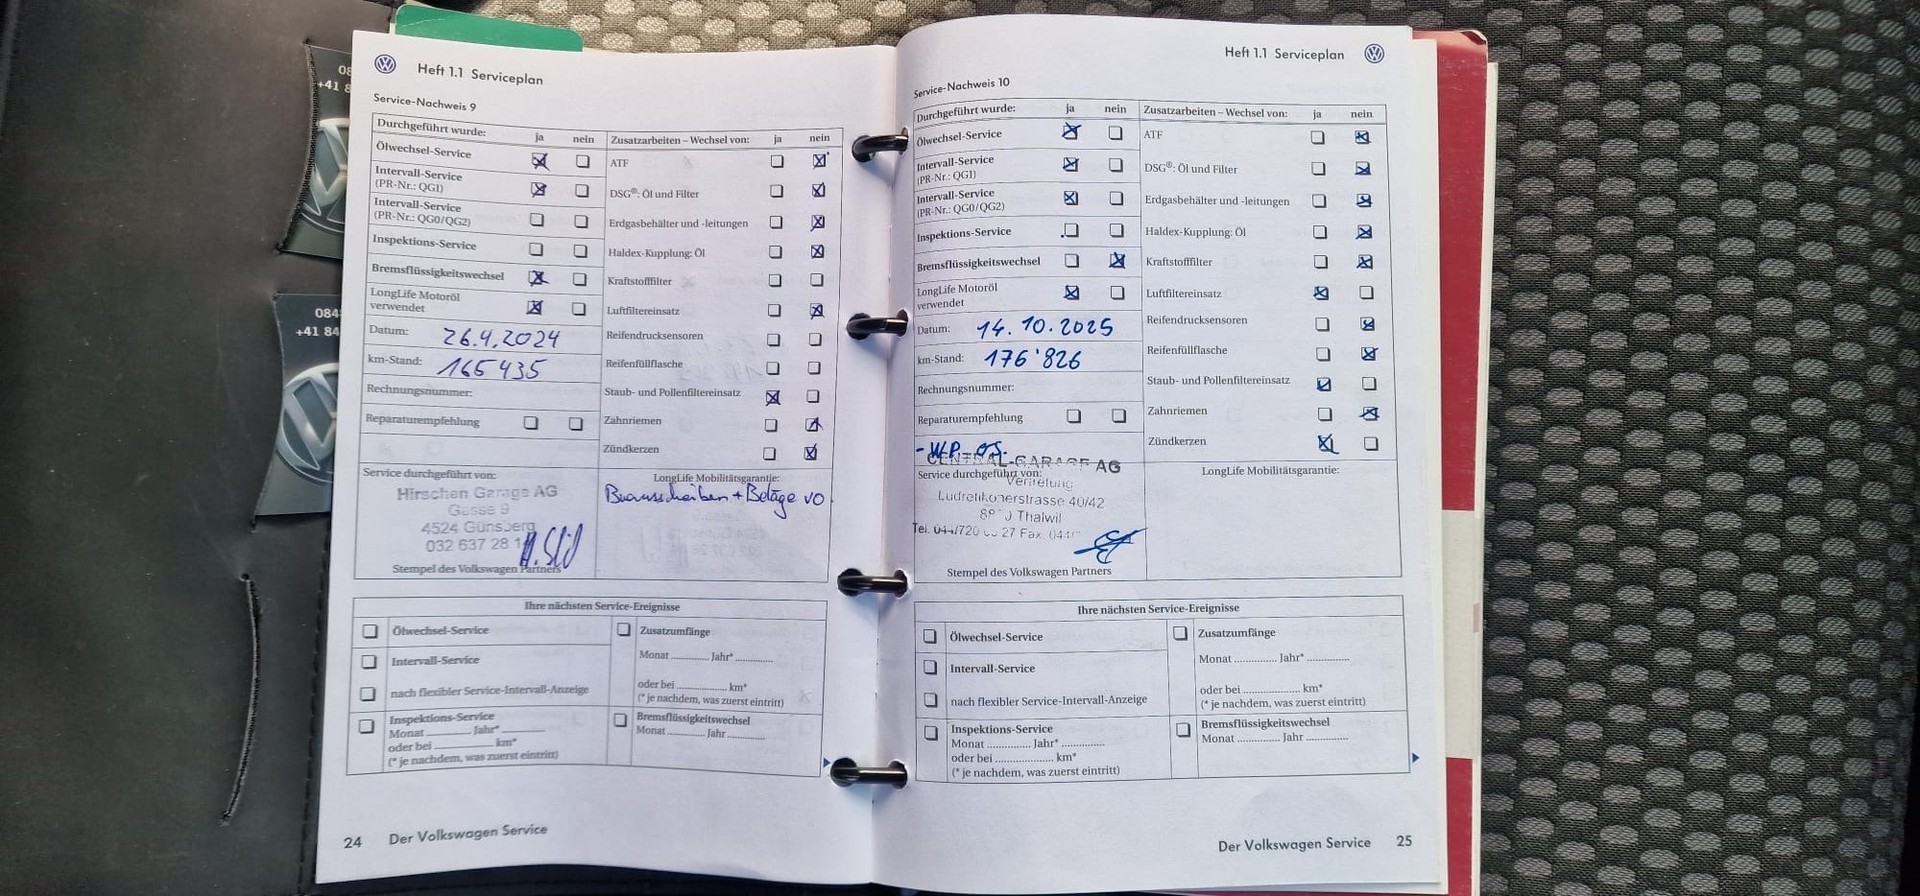 Heft 1.1 Serviceplan
Service-Nachweis 9
Durchgeführt wurde: ja nein
Ölwechsel-Service
Intervall-Service
(PR-Nr.: QG1)
Intervall-Service
(PR-Nr.: QG0/QG2)
Inspektions-Service
Bremsflüssigkeitswechsel
LongLife Motoröl
verwendet
Datum: 26.4.2024
km-Stand: 165435
Rechnungsnummer:
Reparaturempfehlung
Service durchgeführt von:
Hirschen Garage AG
Gasse 9
4524 Günsberg
032 637 28 1
Stempel des Volkswagen Partners
Zusatzarbeiten – Wechsel von: ja nein
ATF
DSG®: Öl und Filter
Erdgasbehälter und -leitungen
Haldex-Kupplung: Öl
Kraftstofffilter
Luftfiltereinsatz
Reifendrucksensoren
Reifenfüllflasche
Staub- und Pollenfiltereinsatz
Zahnriemen
Zündkerzen
LongLife Mobilitätsgarantie:
Bremsscheiben + Beläge vo
Ihre nächsten Service-Ereignisse
Ölwechsel-Service
Intervall-Service
nach flexibler Service-Intervall-Anzeige
Inspektions-Service
Monat ............ Jahr* ............
oder bei ............ km*
(* je nachdem, was zuerst eintritt)
Zusatzumfänge
Monat ............ Jahr* ............
oder bei ............ km*
(* je nachdem, was zuerst eintritt)
Bremsflüssigkeitswechsel
Monat ............ Jahr ............
24 Der Volkswagen Service
Heft 1.1 Serviceplan
Service-Nachweis 10
Durchgeführt wurde: ja nein
Ölwechsel-Service
Intervall-Service
(PR-Nr.: QG1)
Intervall-Service
(PR-Nr.: QG0/QG2)
Inspektions-Service
Bremsflüssigkeitswechsel
LongLife Motoröl
verwendet
Datum: 14.10.2025
km-Stand: 176'826
Rechnungsnummer:
Reparaturempfehlung
CENTRAL-GARAGE AG
Service durchgeführt von:
Vertretung
Ludretikonerstrasse 40/42
Thalwil
Stempel des Volkswagen Partners
Zusatzarbeiten – Wechsel von: ja nein
ATF
DSG®: Öl und Filter
Erdgasbehälter und -leitungen
Haldex-Kupplung: Öl
Kraftstofffilter
Luftfiltereinsatz
Reifendrucksensoren
Reifenfüllflasche
Staub- und Pollenfiltereinsatz
Zahnriemen
Zündkerzen
LongLife Mobilitätsgarantie:
Ihre nächsten Service-Ereignisse
Ölwechsel-Service
Intervall-Service
nach flexibler Service-Intervall-Anzeige
Inspektions-Service
Monat ............ Jahr* ............
oder bei ............ km*
(* je nachdem, was zuerst eintritt)
Zusatzumfänge
Monat ............ Jahr* ............
oder bei ............ km*
(* je nachdem, was zuerst eintritt)
Bremsflüssigkeitswechsel
Monat ............ Jahr ............
Der Volkswagen Service 25